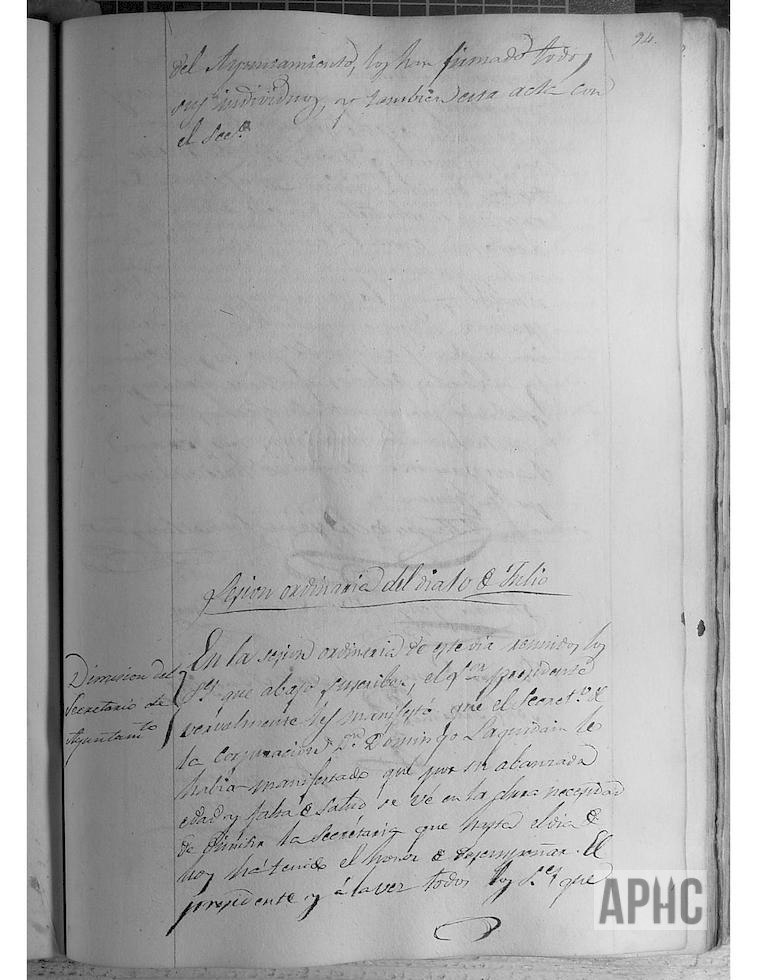 94.
del Ayuntamiento, los han firmado todos
sus individuos, y tambien esta acta con
el Secº
Sesion ordinaria del dia 10 de Julio
Dimision del
Secretario de
Ayuntamto
En la sesion ordinaria de este dia reunidos los
Ses que abajo suscriben, el Sor presidente
vervalmente les manifestó que el Secretº de
la Corporacion Dn Domingo Laquidain le
habia manifestado que por su abanzada
edad y falta de salud se vé en la dura necesidad
de dimitir la Secretaria que hasta el dia de
hoy ha tenido el honor de desempeñar. El
presidente y á la vez todos los Ses que
APHC